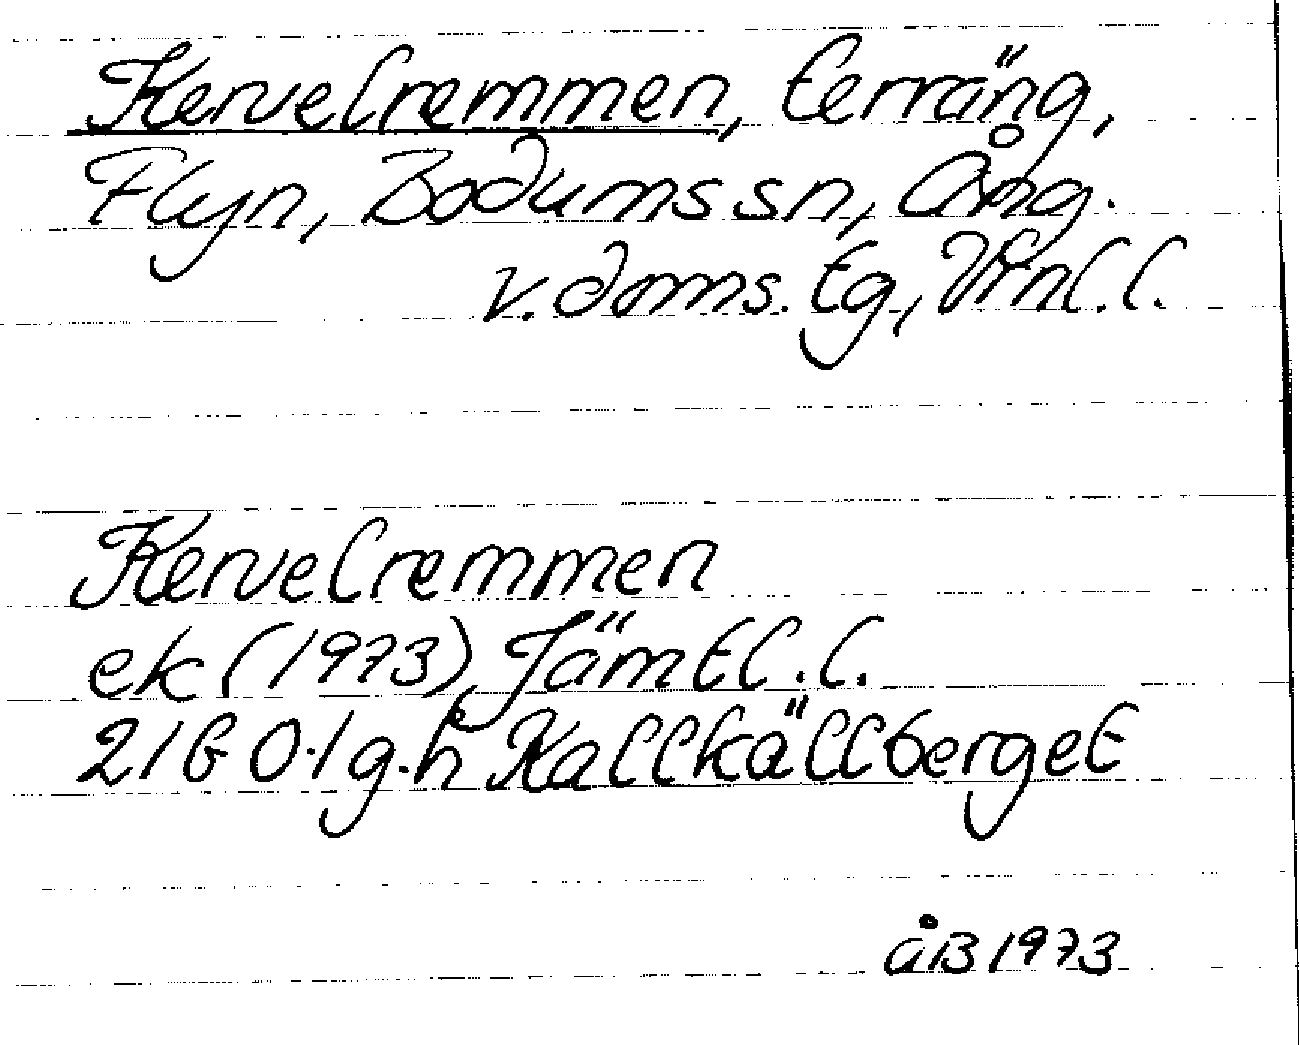 Kervelremmen, terräng,
Flyn, Bodums sn, Ång.
v. doms. tg, Vrnl. l.
Kervelremmen
ek (1973), Jämtl. l.
21G 0-1 g-h Kallkällberget
åB 1973